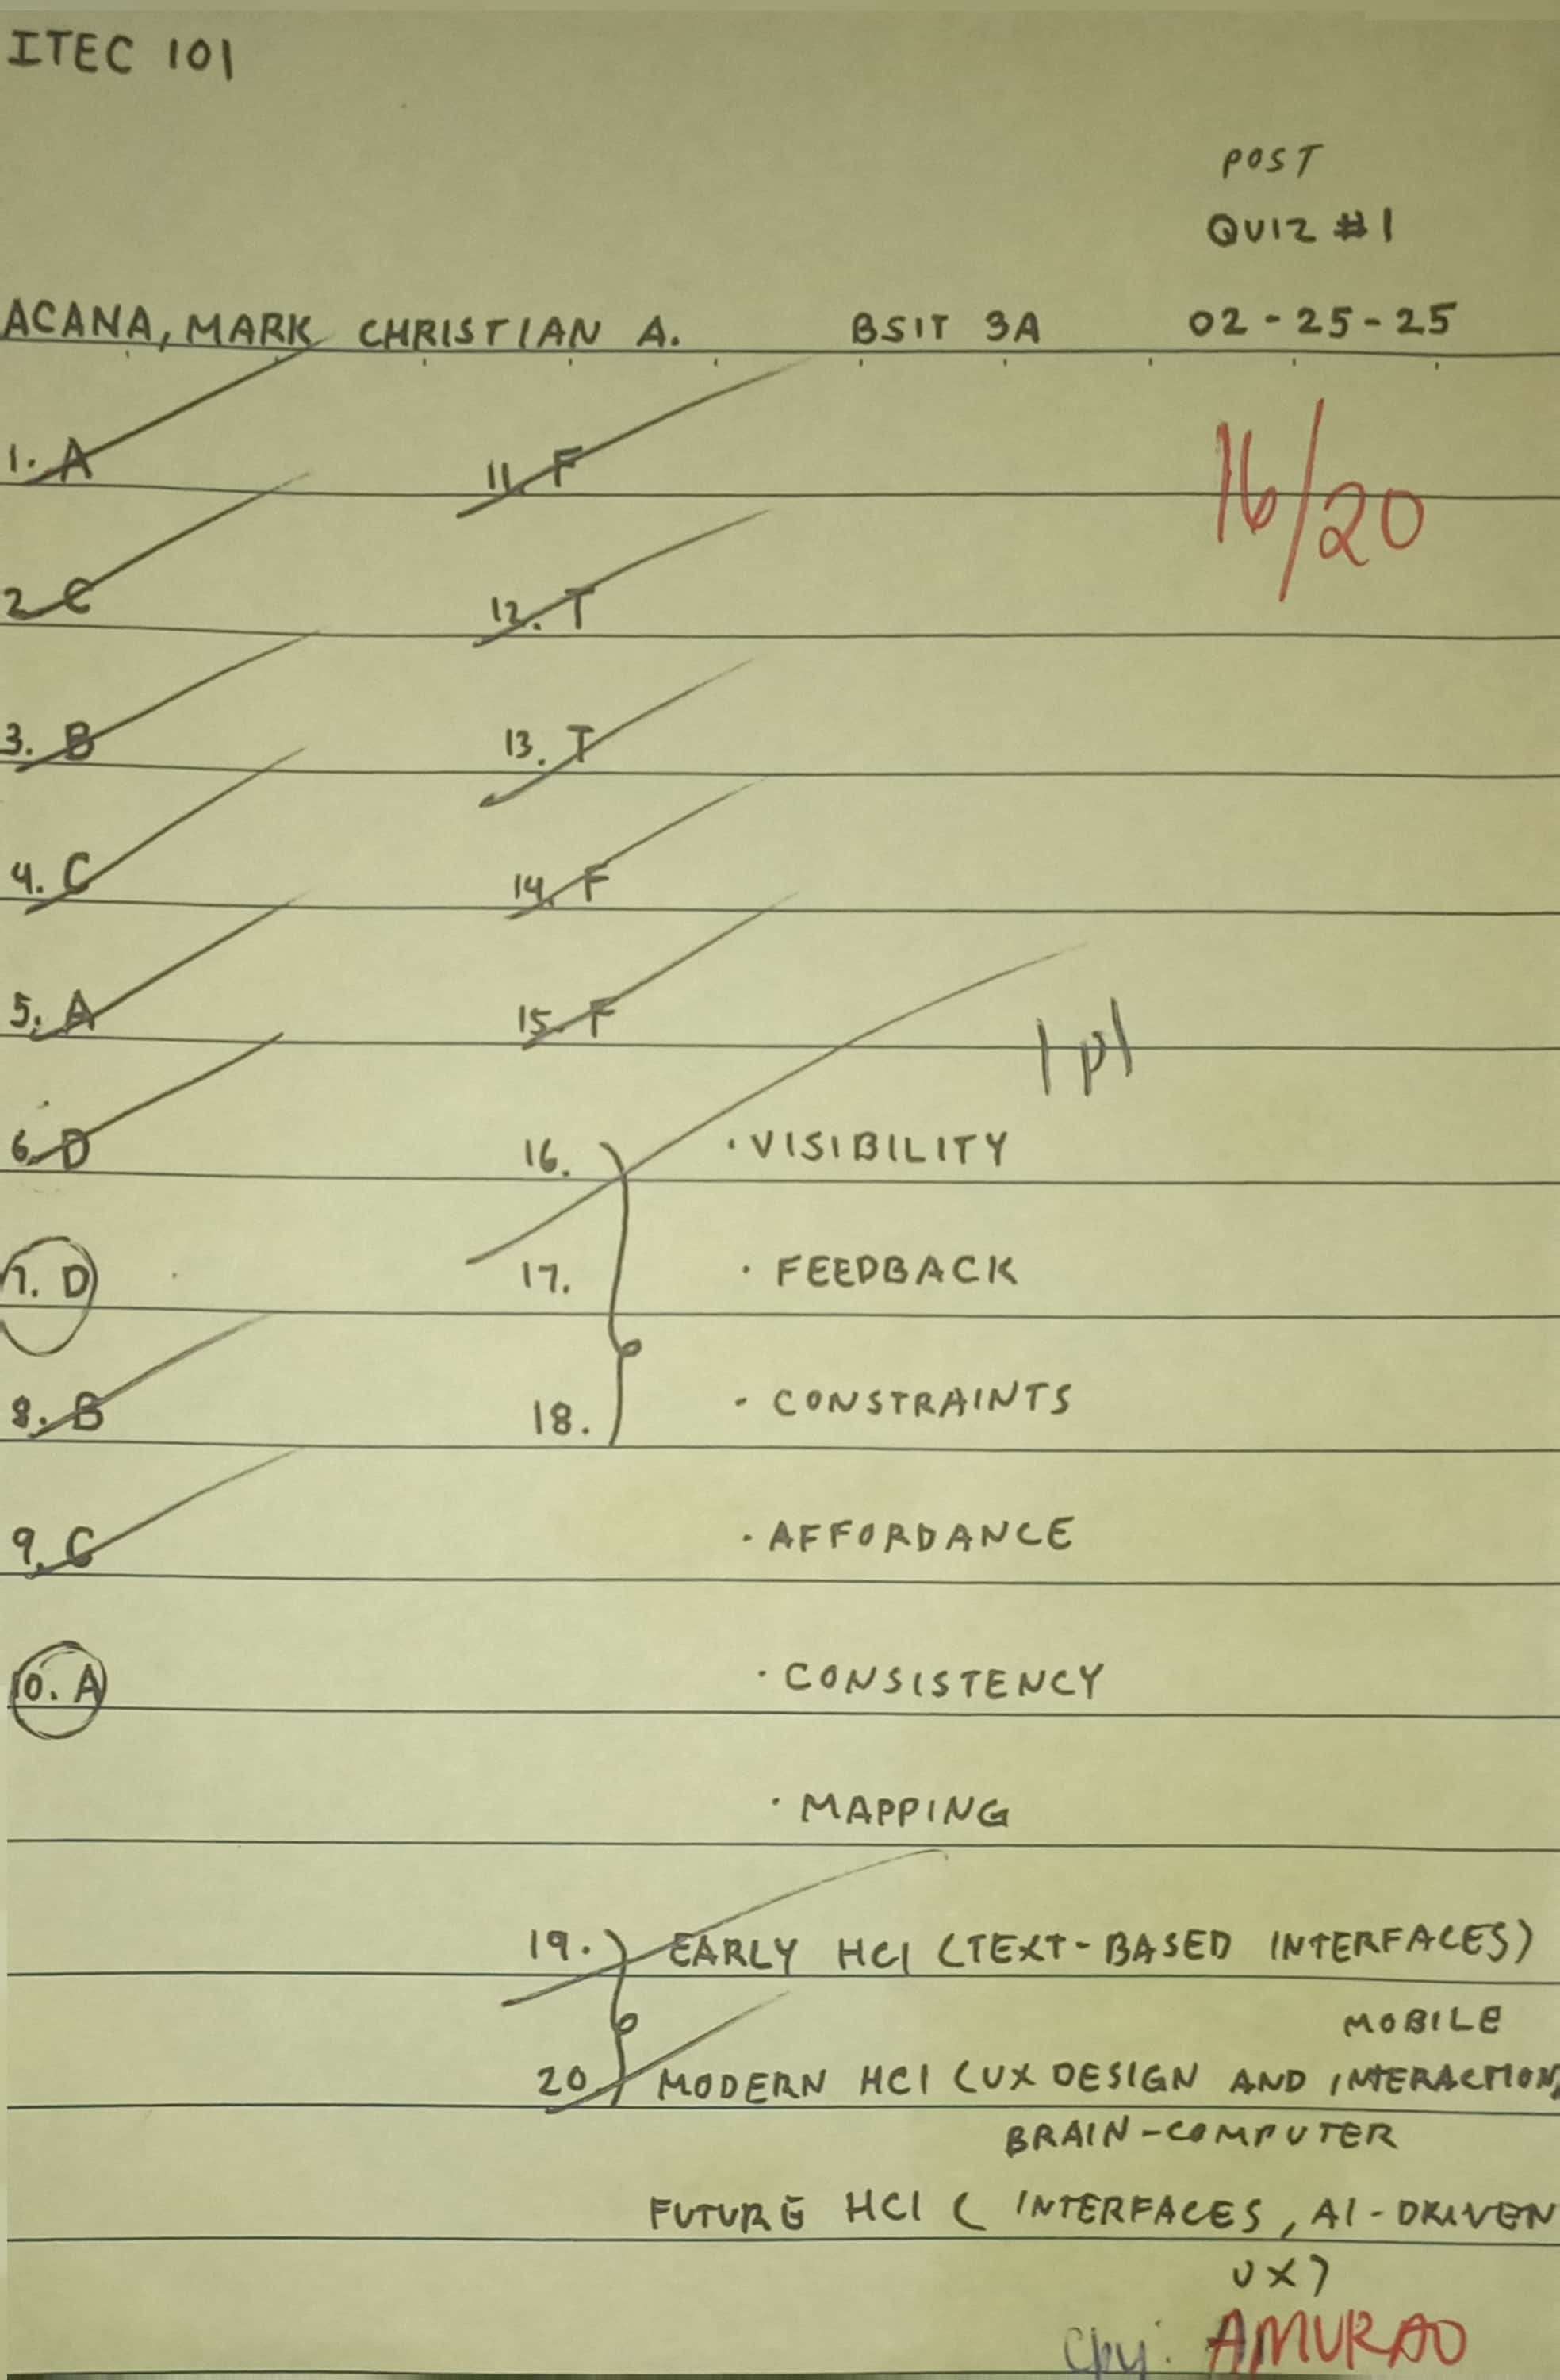 ITEC 101
POST
QUIZ #1
ACANA, MARK CHRISTIAN A. BSIT 3A 02-25-25
16/20
1. A
2 C
3. B
4. C
5. A
6. D
7. D
8. B
9. C
10. A
11. F
12. T
13. T
14. F
15. F
1 pt
16. · VISIBILITY
17. · FEEDBACK
18. · CONSTRAINTS
· AFFORDANCE
· CONSISTENCY
· MAPPING
19. EARLY HCI (TEXT-BASED INTERFACES)
MOBILE
20. MODERN HCI (UX DESIGN AND INTERACTION)
BRAIN-COMPUTER
FUTURE HCI ( INTERFACES, AI-DRIVEN
UX)
AMURAO